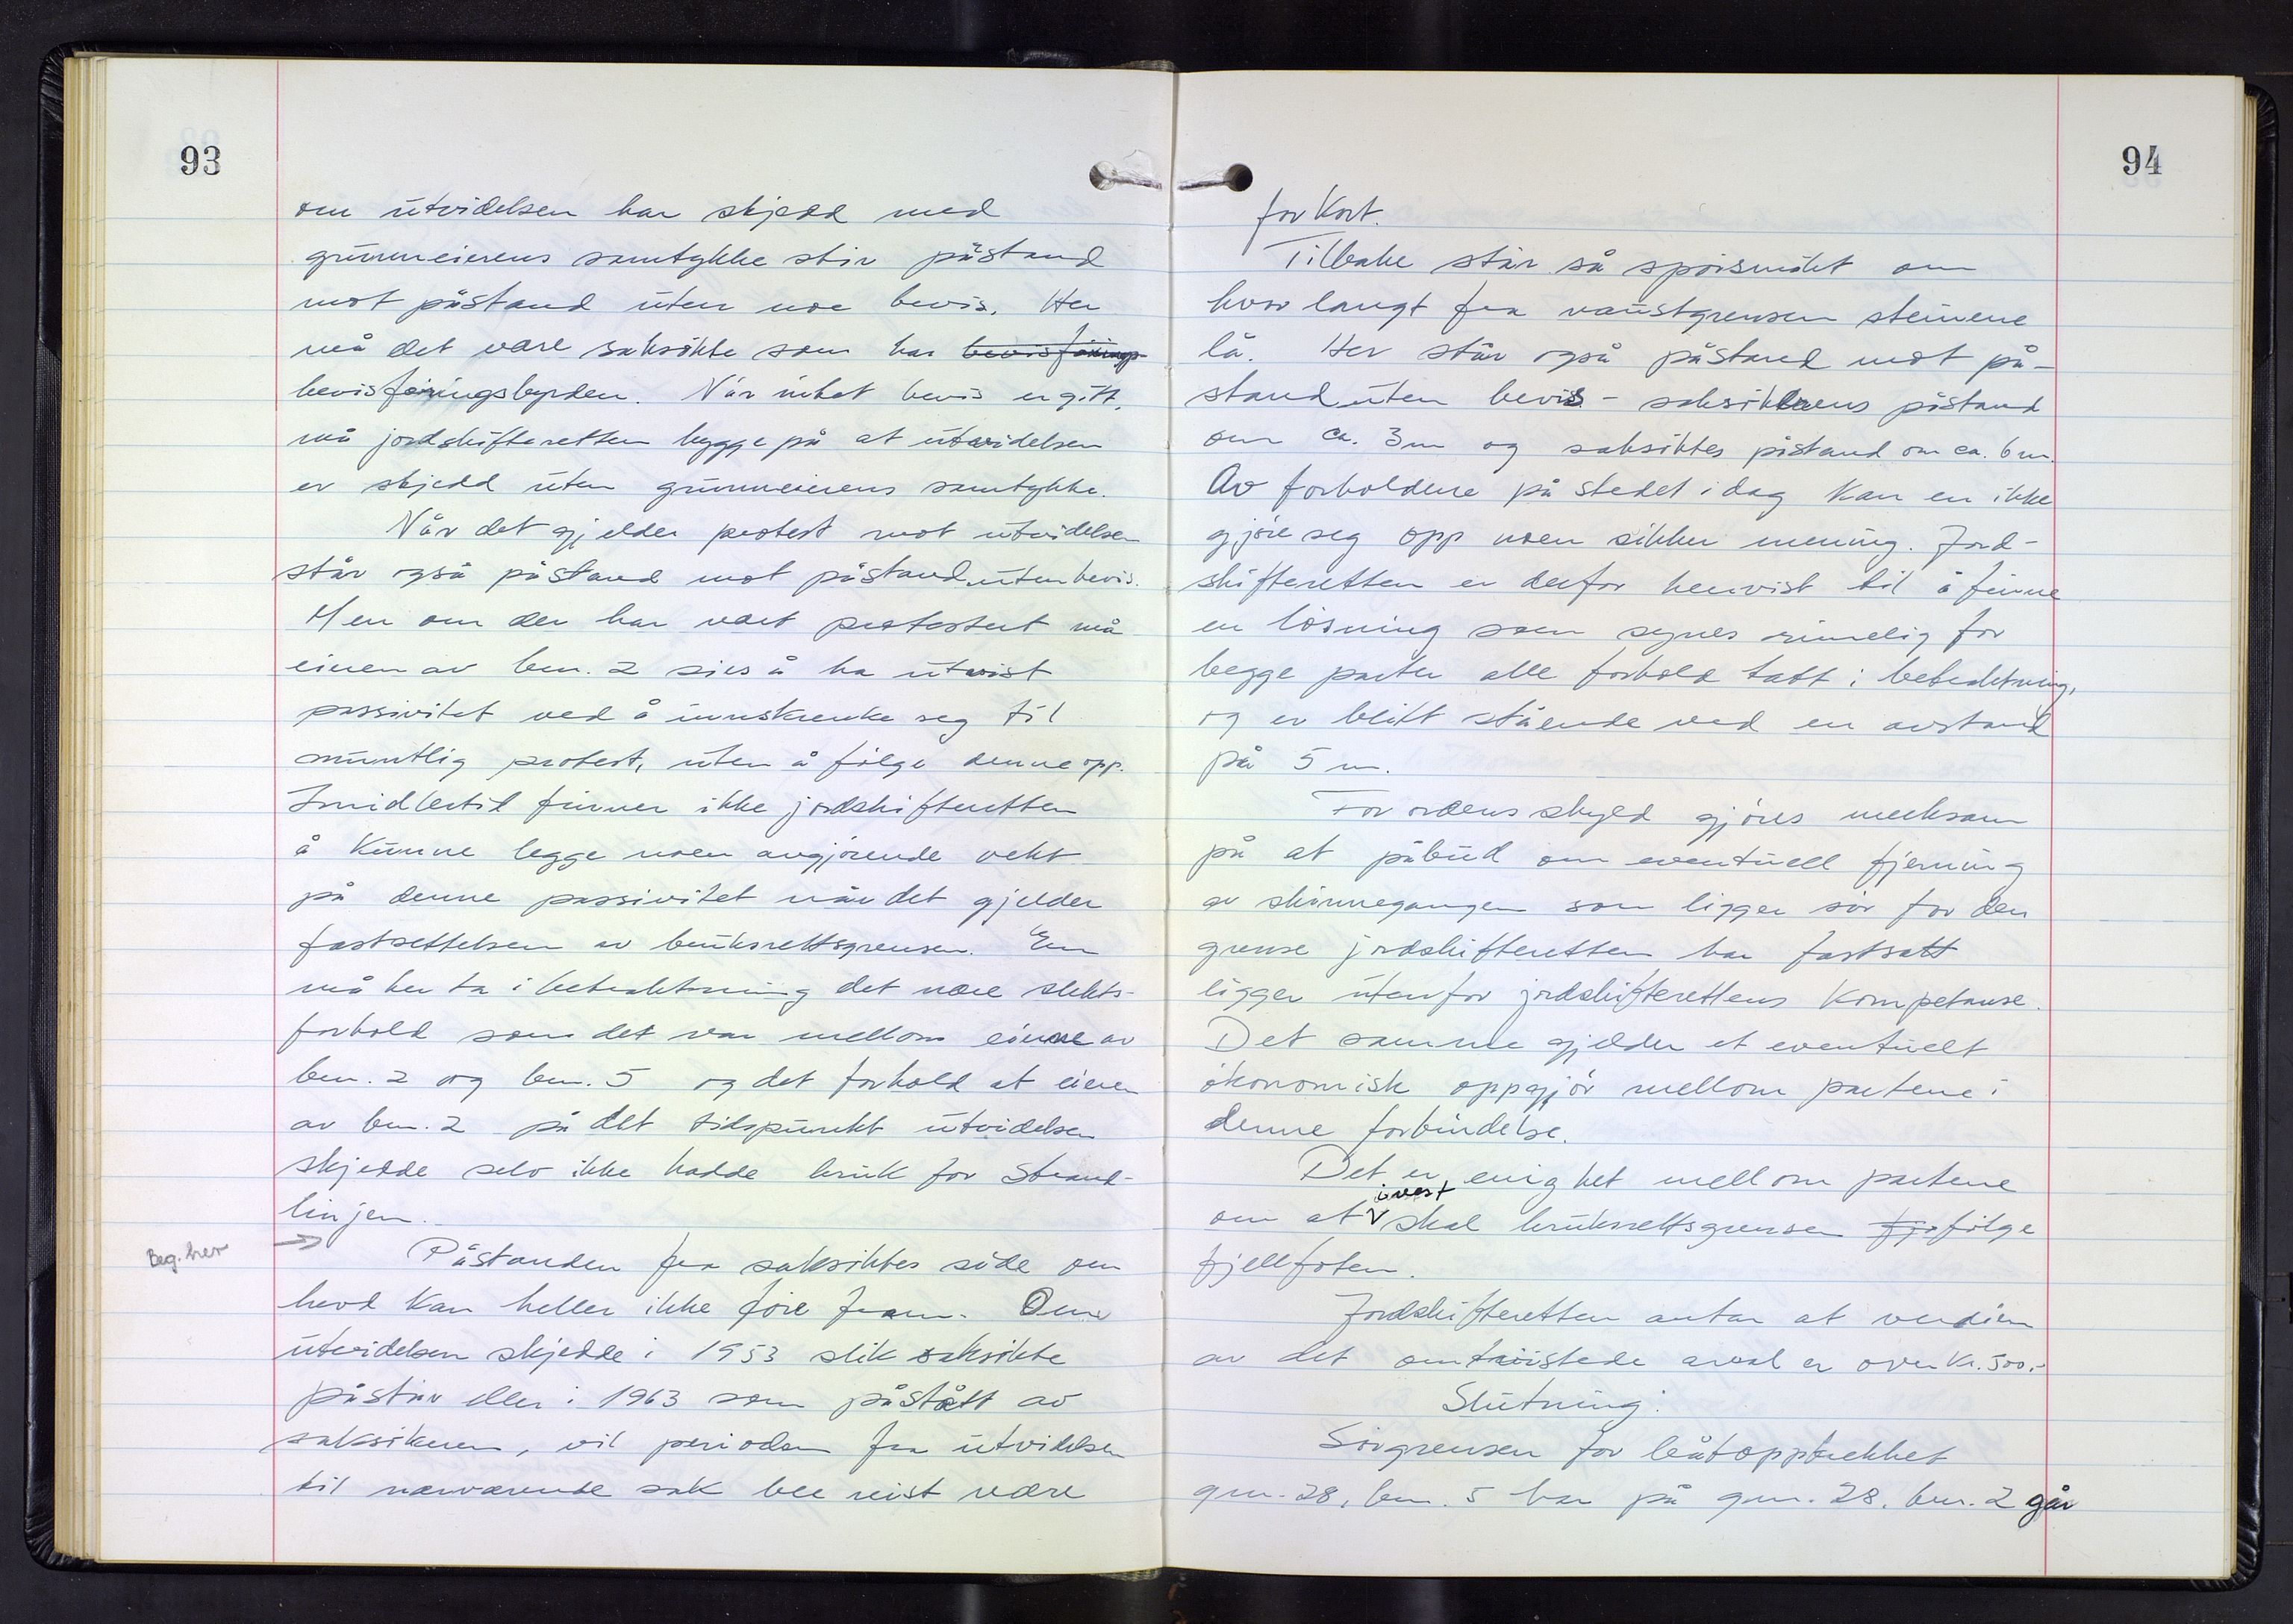 93
om utvidelsen har skjedd med
grunneierens samtykke står påstand
mot påstand uten noe bevis. Her
må det være saksökte som har bevisförings
bevisföringsbyrden. Når intet bevis er gitt,
må jordskifteretten bygge på at utvidelsen
er skjedd uten grunneierens samtykke.
Når det gjelder protest mot utvidelsen
står også påstand mot påstand uten bevis.
Men om der har vært protestert må
eieren av bnr. 2 sies å ha utvist
passivitet ved å innskrenke seg til
muntlig protest, uten å fölge denne opp.
Imidlertid finner ikke jordskifteretten
å kunne legge noen avgjörende vekt
på denne passivitet når det gjelder
fastsettelsen av bruksrettsgrensen. En
må her ta i betraktning det nære slekts-
forhold som det var mellom eierne av
bnr. 2 og bnr. 5 og det forhold at eieren
av bnr. 2 på det tidspunkt utvidelsen
skjedde selv ikke hadde bruk for strand-
linjen.
Beg. her →
Påstanden fra saksöktes side om
hevd kan heller ikke före fram. Om
utvidelsen skjedde i 1953 slik saksökte
påstår eller i 1963 som påstått av
saksökeren, vil perioden fra utvidelsen
til nærværende sak ble reist være
94
for kort.
Tilbake står så spörsmålet om
hvor langt fra naustgrensen steinene
lå. Her står også påstand mot på-
stand uten bevis - saksökerens påstand
om ca. 3 m og saksöktes påstand om ca. 6 m.
Av forholdene på stedet i dag kan en ikke
gjöre seg opp noen sikker mening. Jord-
skifteretten er derfor henvist til å finne
en lösning som synes rimelig for
begge parter alle forhold tatt i betraktning,
og er blitt stående ved en avstand
på 5 m.
For ordens skyld gjöres merksam
på at påbud om eventuell fjerning
av skinnegangen som ligger sör for den
grense jordskifteretten har fastsatt
ligger utenfor jordskifterettens kompetanse.
Det samme gjelder et eventuelt
ökonomisk oppgjör mellom partene i
denne forbindelse.
Det er enighet mellom partene
i vest
om at skal bruksrettsgrensen fjo fölge
fjellfoten.
Jordskifteretten antar at verdien
av det omtvistede areal er over kr. 500.-
Slutning:
Sörgrensen for båtopptrekket
gnr. 28, bnr. 5 har på gnr. 28, bnr. 2 går